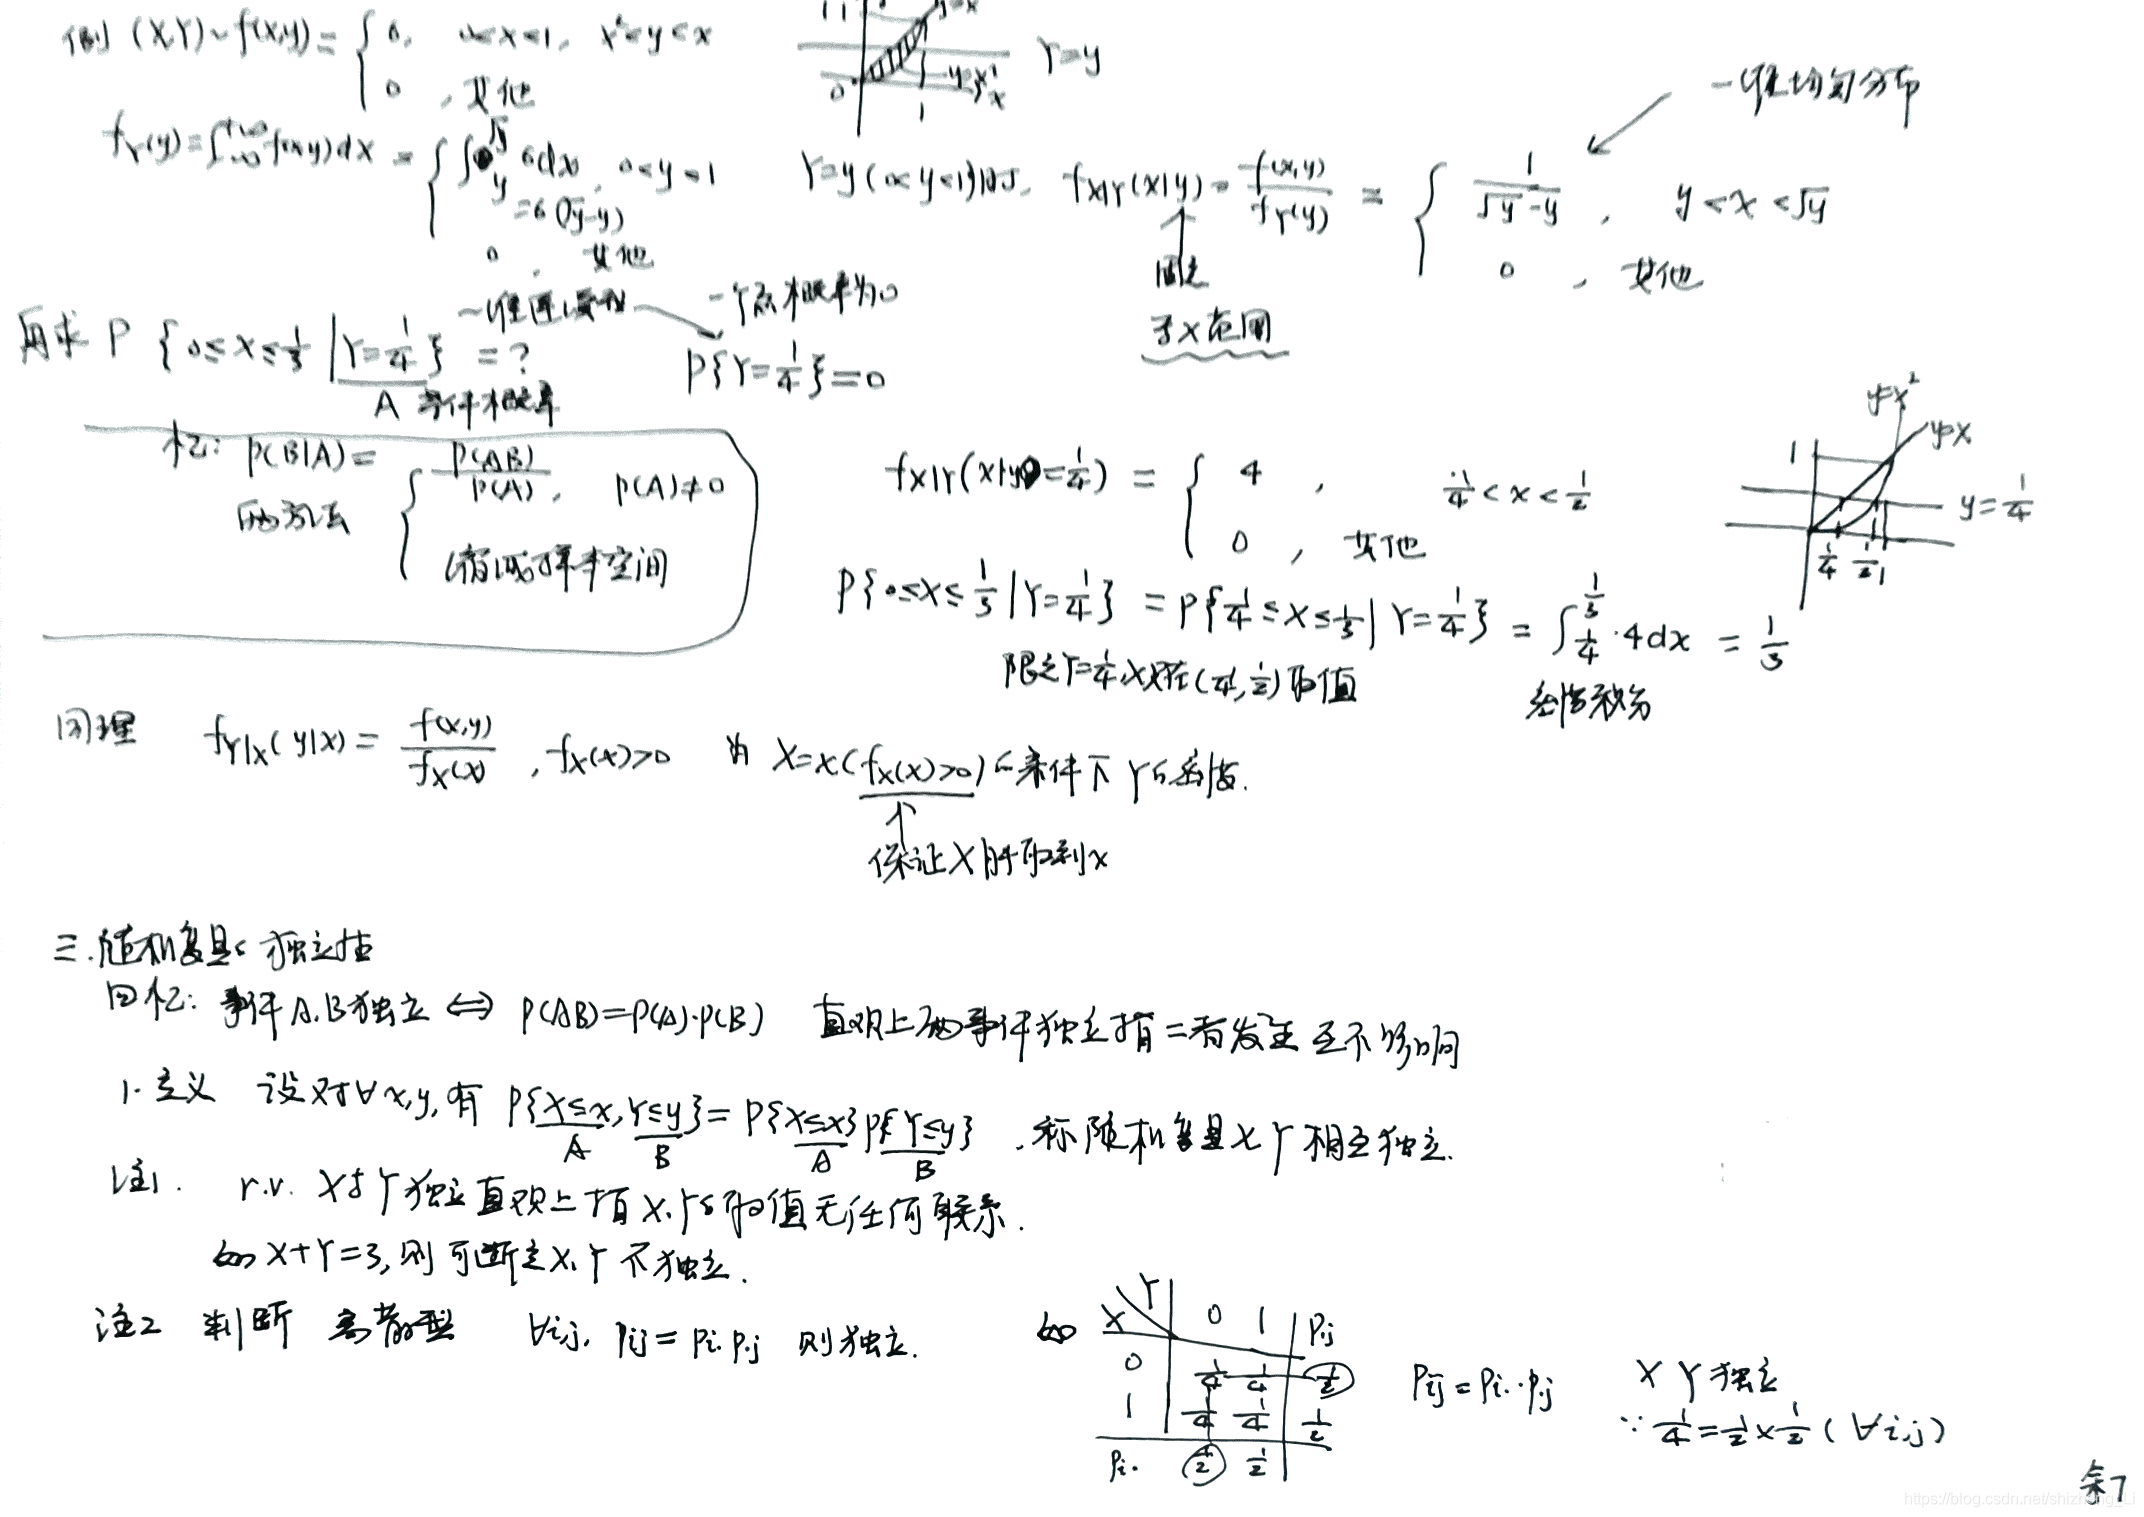 例 (X,Y)~f(x,y)= { 6, 0<x<1, x²<y<x
0, 其他
y=x
Y=y
0 1 y=x² x
一维均匀分布
f_Y(y)=∫_{-∞}^{+∞}f(x,y)dx = { ∫_y^{√y} 6dx, 0<y<1
=6(√y-y)
0, 其他
Y=y(0<y<1)时, f_{X|Y}(x|y)= f(x,y)/f_Y(y) = { 1/(√y-y), y<x<√y
0, 其他
固定
写X范围
再求 P{0≤X≤1/3|Y=1/4} =?
A 条件概率
一维连续型 一个点概率为0
P{Y=1/4}=0
忆: P(B|A)= { P(AB)/P(A), P(A)≠0
两方法
缩减样本空间
f_{X|Y}(x|y=1/4) = { 4, 1/4<x<1/2
0, 其他
y=x²
y=x
1
y=1/4
1/4 1/2 1
P{0≤X≤1/3|Y=1/4} =P{1/4≤X≤1/3|Y=1/4} = ∫_{1/4}^{1/3}·4dx = 1/3
限定Y=1/4,X只在(1/4,1/2)取值
密度积分
同理 f_{Y|X}(y|x)= f(x,y)/f_X(x), f_X(x)>0 为 X=x(f_X(x)>0)的条件下Y的密度.
保证X能取到x
三.随机变量的独立性
回忆: 事件A.B独立⇔ P(AB)=P(A)·P(B) 直观上两事件独立指二者发生互不影响
1.定义 设对∀x,y,有 P{X≤x,Y≤y}=P{X≤x}P{Y≤y}, 称随机变量X Y相互独立.
A B A B
注1. r.v. X与Y独立直观上指X、Y的取值无任何联系.
如X+Y=3,则可断定X、Y不独立.
注2 判断 离散型 ∀i,j, Pij=Pi.P.j 则独立.
如 X Y 0 1 P.j
0 1/4 1/4 1/2
1 1/4 1/4 1/2
Pi. 1/2 1/2
Pij=Pi.·P.j
X Y独立
∵ 1/4=1/2×1/2(∀i,j)
https://blog.csdn.net/shizheng_Li